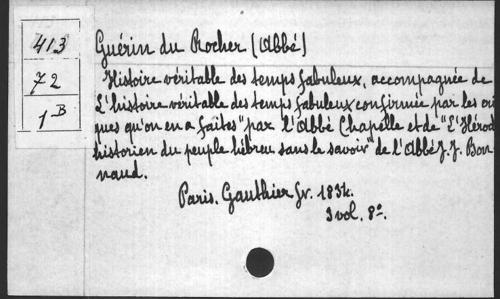 413
72
1B
Guérin du Rocher (Abbé)
Histoire véritable des temps fabuleux, accompagnée de
L'histoire véritable des temps fabuleux confirmée par les cri
ques qu'on en a faites" par l'Abbé Chapelle et de "L'Hérod
historien du peuple hébreu sans le savoir" de l'Abbé J. J. Bon-
naud.
Paris. Gauthier fr. 1834.
3 vol. 8º.